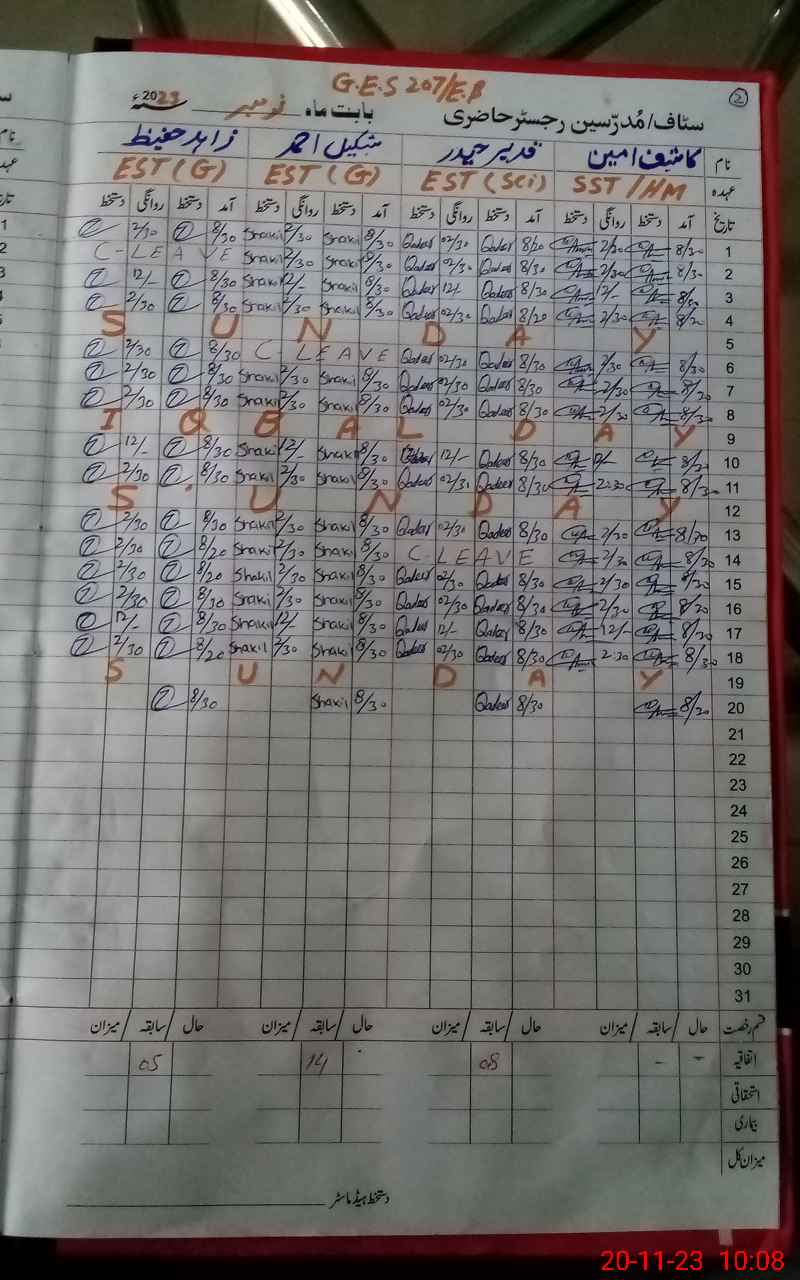 G.E.S 207/E.B
2
سٹاف/مُدرّسین رجسٹر حاضری بابت ماہ نومبر 2023ء
نام کاشف امین قدیر حیدر شکیل احمد زاہد حفیظ
عہدہ SST/HM EST (Sci) EST (G) EST (G)
تاریخ آمد دستخط روانگی دستخط آمد دستخط روانگی دستخط آمد دستخط روانگی دستخط آمد دستخط روانگی دستخط
2/30 8/30 Shakil 2/30 Shakil 8/30 Qadeer 02/30 Qadeer 8/30 2/30 8/30 1
C-LEAVE Shakil 2/30 Shakil 8/30 Qadeer 02/30 Qadeer 8/30 2/30 8/30 2
12/- 8/30 Shakil 12/- Shakil 8/30 Qadeer 12/- Qadeer 8/30 12/- 8/30 3
2/30 8/30 Shakil 2/30 Shakil 8/30 Qadeer 02/30 Qadeer 8/20 2/30 8/20 4
SUNDAY 5
2/30 8/30 C-LEAVE Qadeer 02/30 Qadeer 8/30 2/30 8/30 6
2/30 8/30 Shakil 2/30 Shakil 8/30 Qadeer 02/30 Qadeer 8/30 2/30 8/20 7
2/30 8/30 Shakil 2/30 Shakil 8/30 Qadeer 02/30 Qadeer 8/30 2/30 8/30 8
IQBAL DAY 9
12/- 8/30 Shakil 12/- Shakil 8/30 12/- Qadeer 8/30 8/20 10
2/30 8/30 Shakil 2/30 Shakil 8/30 Qadeer 02/31 Qadeer 8/30 2:30 8/30 11
SUNDAY 12
2/30 8/30 Shakil 2/30 Shakil 8/30 Qadeer 02/30 Qadeer 8/30 2/20 8/30 13
2/30 8/20 Shakil 2/30 Shakil 8/30 C-LEAVE 2/30 8/30 14
2/30 8/20 Shakil 2/30 Shakil 8/30 Qadeer 02/30 Qadeer 8/30 2/30 8/20 15
2/30 8/30 Shakil 2/30 Shakil 8/30 Qadeer 02/30 Qadeer 8/30 2/20 8/20 16
12/- 8/30 Shakil 12/- Shakil 8/30 Qadeer 12/- Qadeer 8/30 12/- 8/30 17
2/30 8/20 Shakil 2/30 Shakil 8/30 Qadeer 02/30 Qadeer 8/30 2:30 8/30 18
SUNDAY 19
8/30 Shakil 8/30 Qadeer 8/30 8/20 20
21
22
23
24
25
26
27
28
29
30
31
قسم رخصت حال / سابقہ / میزان حال / سابقہ / میزان حال / سابقہ / میزان حال / سابقہ / میزان
اتفاقیہ - - 08 14 05
استحقاقی
بیماری
میزان کل
دستخط ہیڈ ماسٹر
20-11-23 10:08